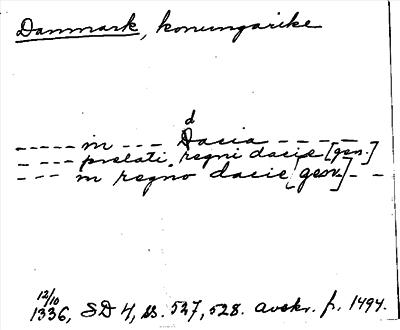 Danmark, konungarike
d
----- in --- Dacia ------
---- prelati regni dacie [gen.]
- --- in regno dacie [gen.] - -
12/10
1336, SD 4, ss. 527, 528. avskr. fr. 1494.